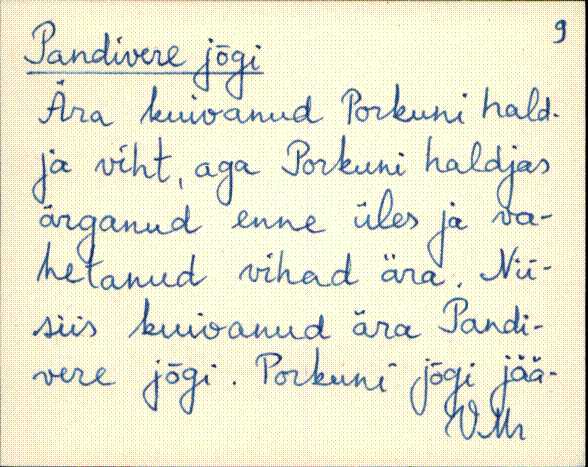 9
Pandivere jõgi
Ära kuivanud Porkuni hald-
ja viht, aga Porkuni haldjas
ärganud enne üles ja va-
hetanud vihad ära. Nii-
siis kuivanud ära Pandi-
vere jõgi. Porkuni jõgi jää-
VMr